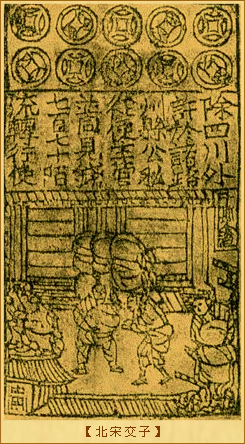 除四川外
許於諸路
州縣公私
從便主管
並同見錢
七百七十陌
流轉行使
【北宋交子】